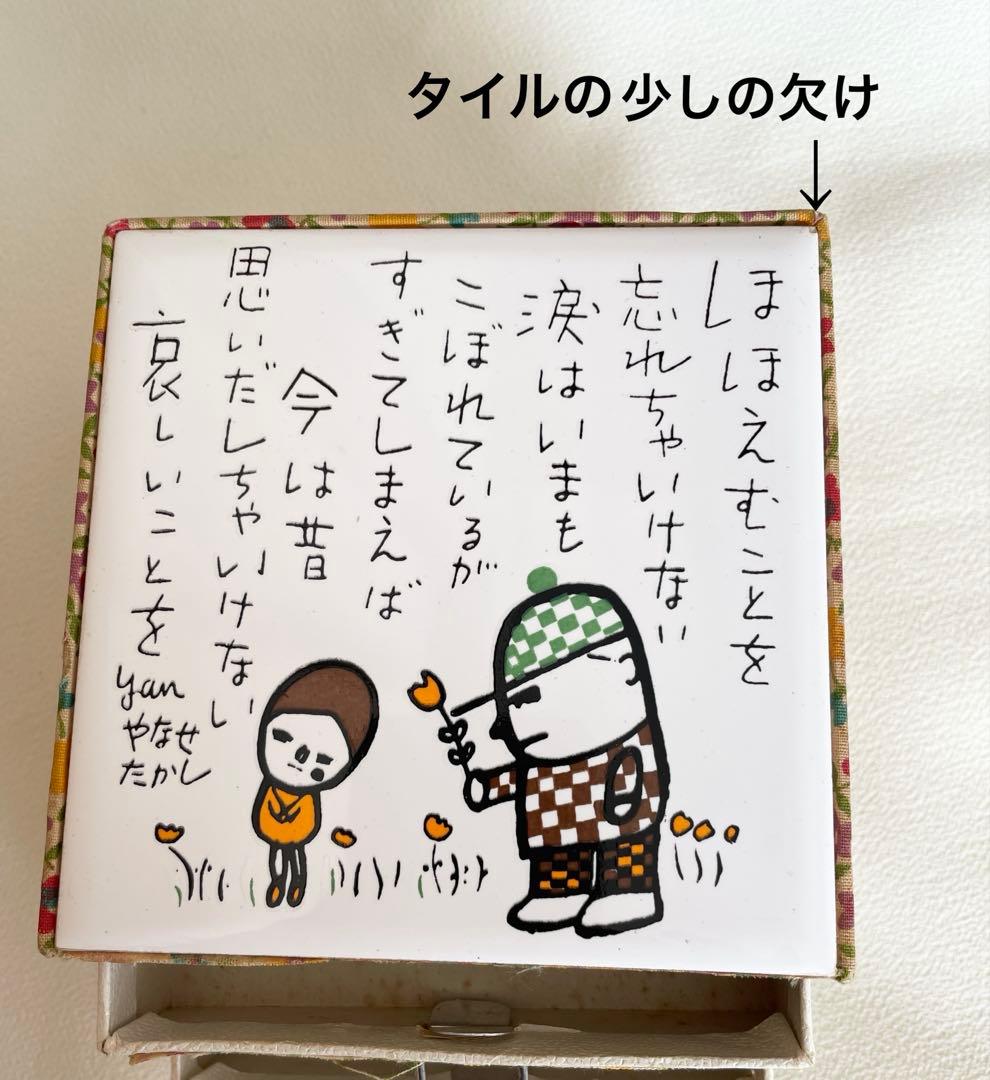 タイルの少しの欠け
ほほえむことを
忘れちゃいけない
涙はいまも
こぼれているが
すぎてしまえば
今は昔
思いだしちゃいけない
哀しいことを
yan
やなせ
たかし